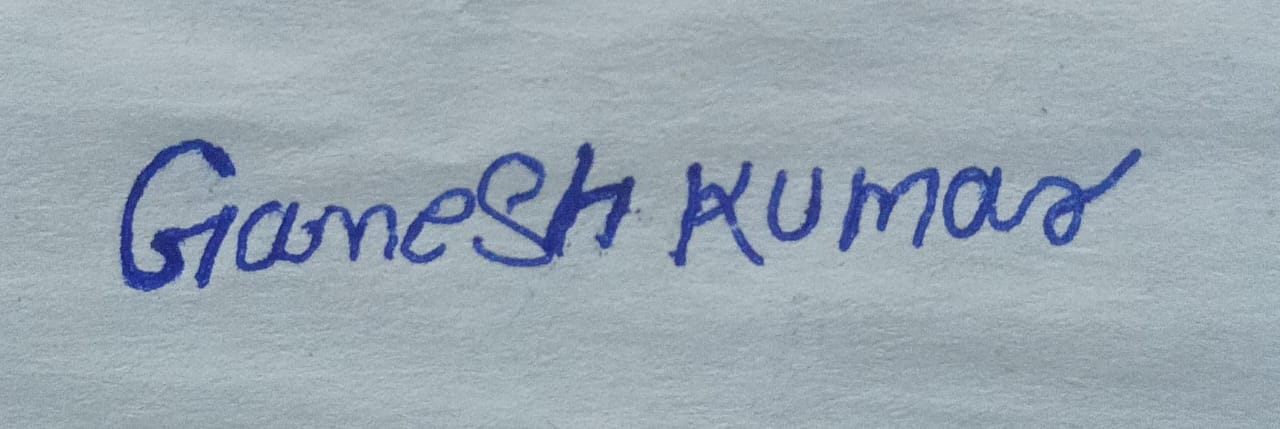 Ganesh Kumar